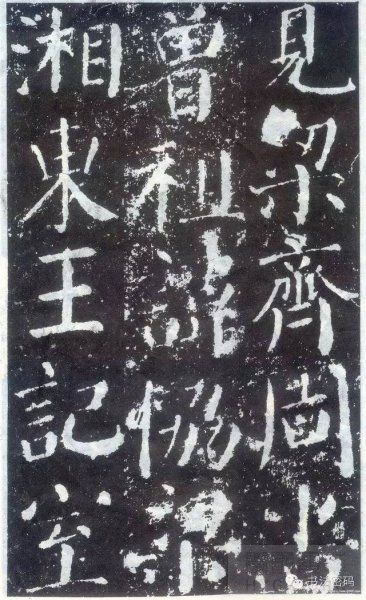 見梁齊周書
曾祖諱恊梁
湘東王記室
书法密码